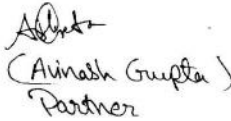 (Avinash Gupta)
Partner